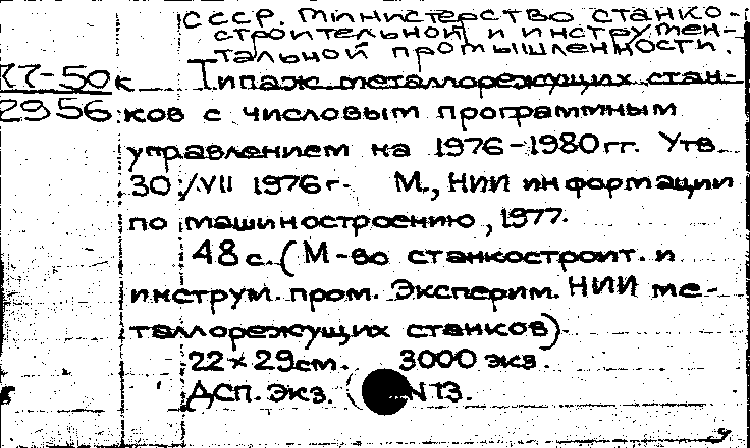 СССР. Министерство станко-
строительной и инструмен-
тальной промышленности.
77-50к Типаж металлорежущих стан-
2956 ков с числовым программным
управлением на 1976-1980гг. Утв.
30/VII 1976г. М., НИИ информации
по машиностроению, 1977.
48 с. (М-во станкостроит. и
инструм. пром. Эксперим. НИИ ме-
таллорежущих станков)
22×29см. 3000 экз.
ДСП. Экз.